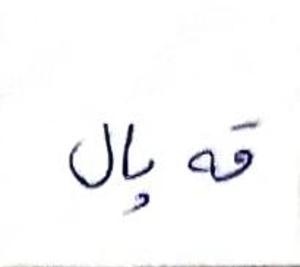 قه پال